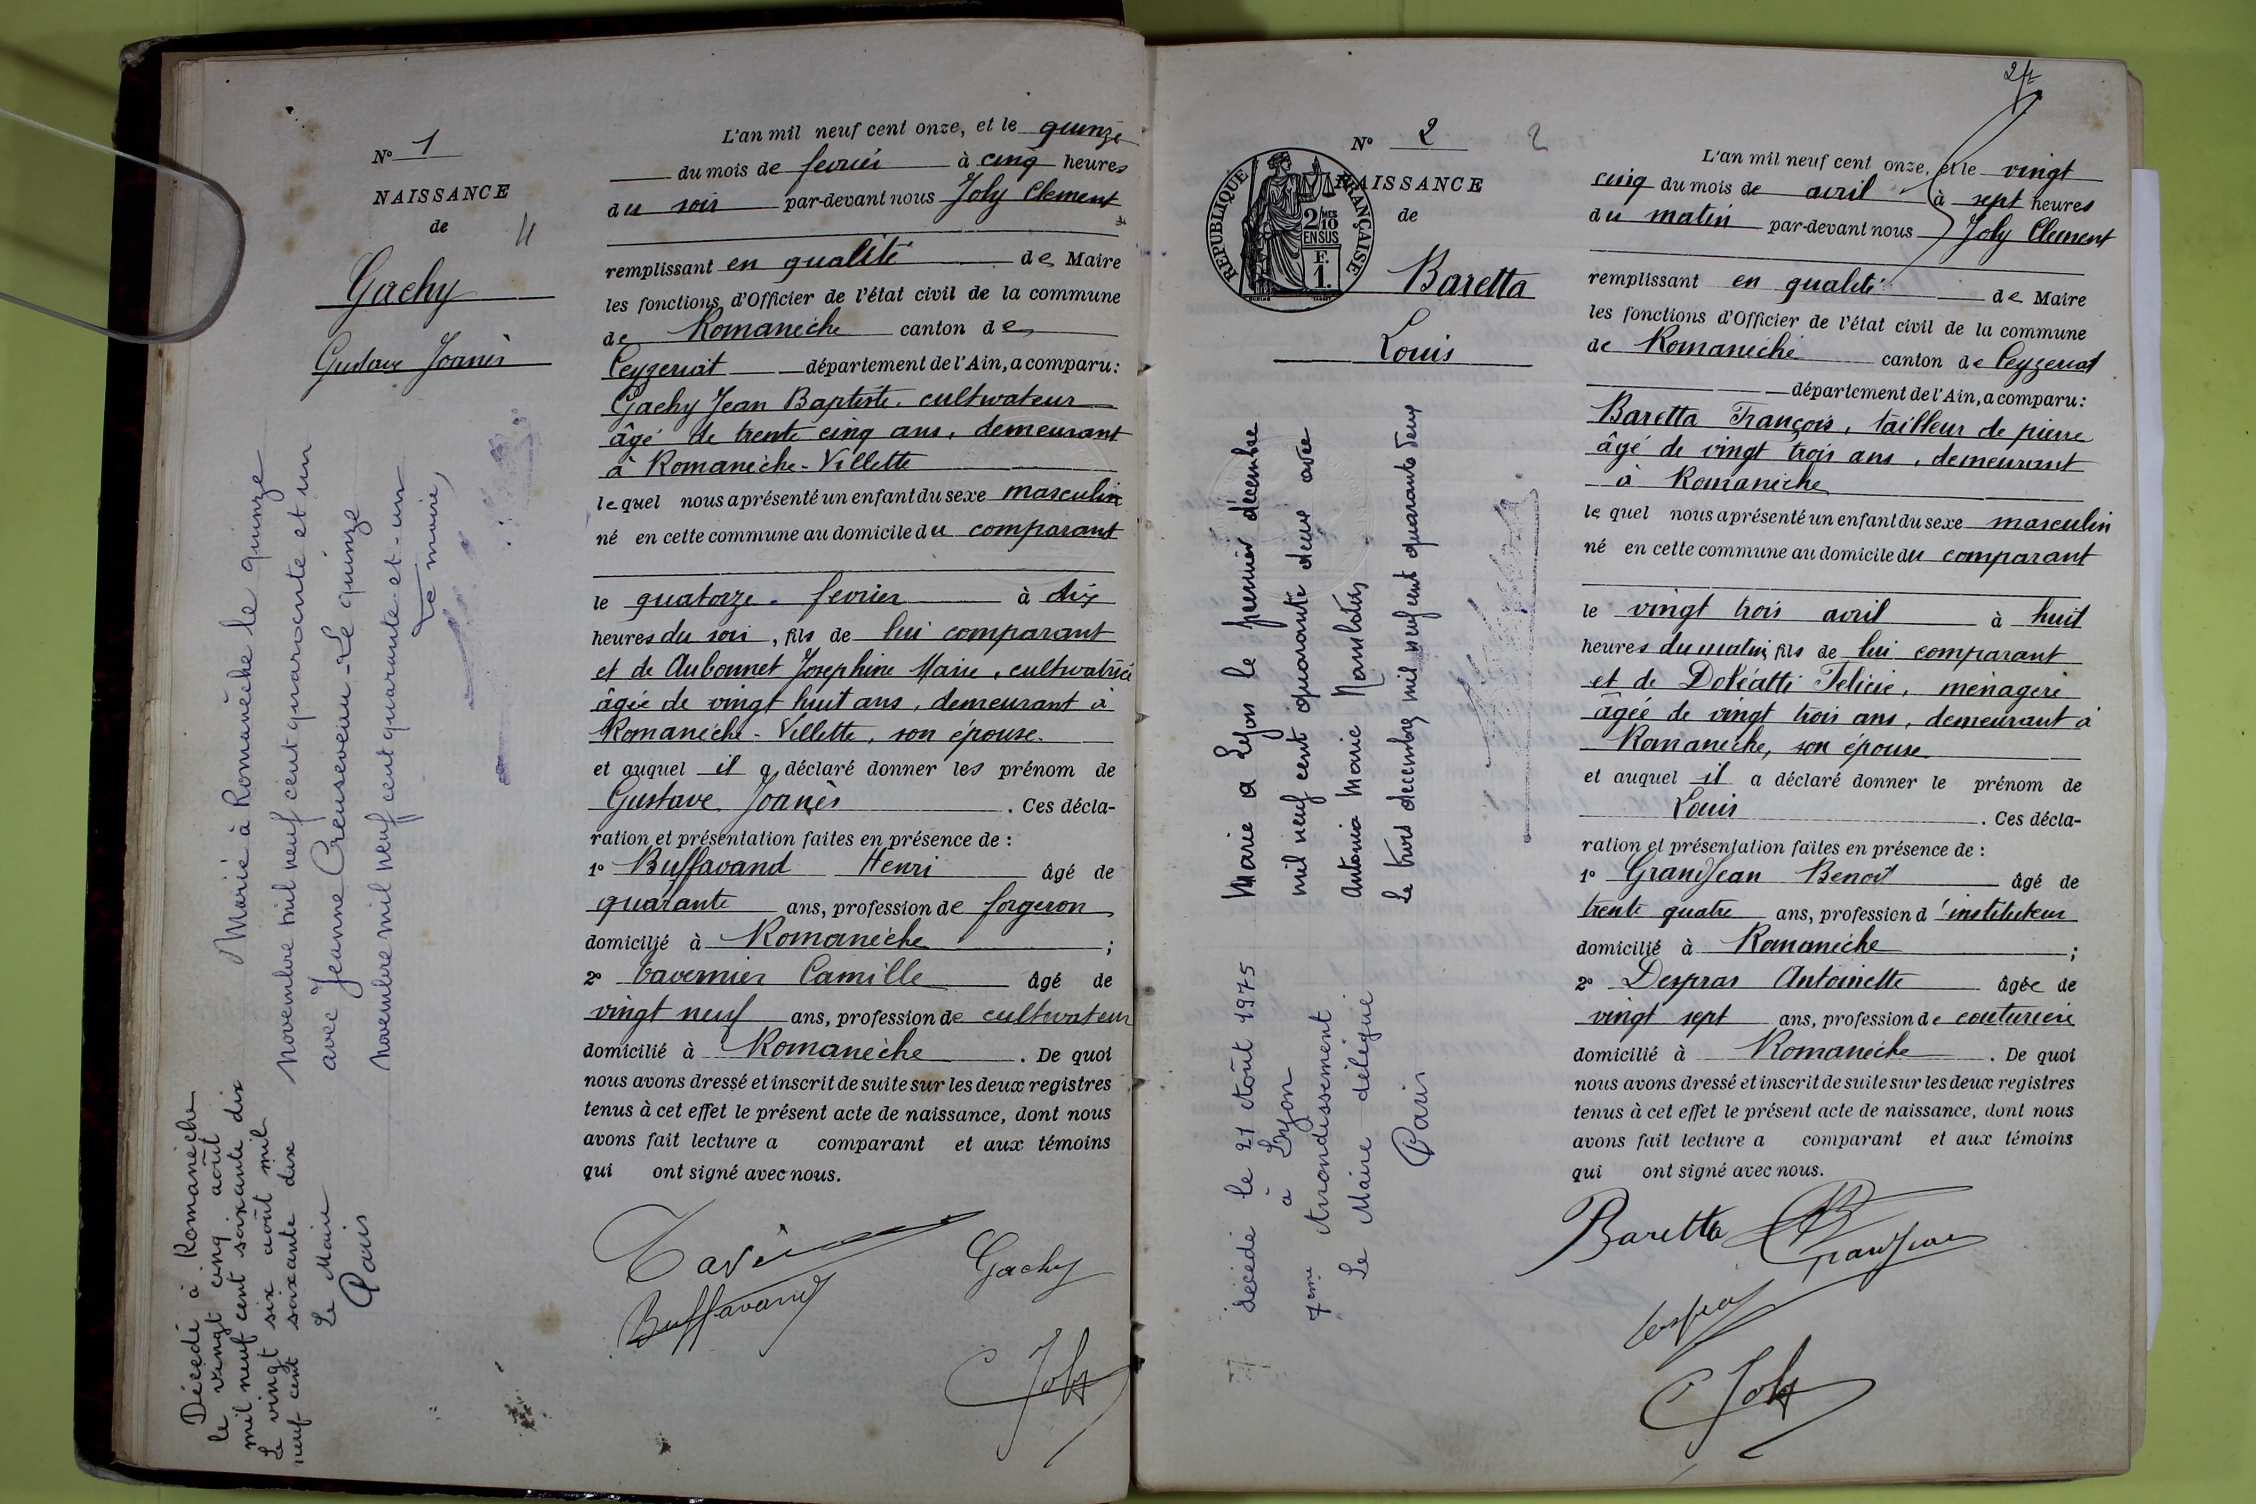 N° 1
NAISSANCE
de
4
Gachy
Gustave Joanès
L'an mil neuf cent onze, et le quinze
du mois de fevrier à cinq heures
du soir par-devant nous Joly Clement
remplissant en qualité de Maire
les fonctions d'Officier de l'état civil de la commune
de Romanèche canton de
Ceyzeriat département de l'Ain, a comparu:
Gachy Jean Baptiste cultivateur
âgé de trente cinq ans, demeurant
à Romanèche-Villette
lequel nous a présenté un enfant du sexe masculin
né en cette commune au domicile du comparant
le quatorze fevrier à dix
heures du soir, fils de lui comparant
et de Aubonnet Josephine Marie, cultivatrice
âgée de vingt huit ans, demeurant à
Romanèche-Villette, son épouse.
et auquel il a déclaré donner les prénom de
Gustave Joanès. Ces décla-
ration et présentation faites en présence de :
1° Buffavand Henri âgé de
quarante ans, profession de forgeron
domicilié à Romanèche ;
2° Tavernier Camille âgé de
vingt neuf ans, profession de cultivateur
domicilié à Romanèche. De quoi
nous avons dressé et inscrit de suite sur les deux registres
tenus à cet effet le présent acte de naissance, dont nous
avons fait lecture a comparant et aux témoins
qui ont signé avec nous.
Gachy
Buffavand
C Joly
Marié à Romanèche le quinze
novembre mil neuf cent quarante et un
avec Jeanne Creuseveau - Le quinze
novembre mil neuf cent quarante-et-un
Le maire,
Décédé à Romanèche
le vingt cinq août
mil neuf cent soixante dix
Le vingt six août mil
neuf cent soixante dix
Le Maire
Pais
2
N° 2
2
NAISSANCE
de
RÉPUBLIQUE FRANÇAISE
2/10 MES
EN SUS
F.
1.
Baretta
Louis
L'an mil neuf cent onze, et le vingt
cinq du mois de avril à sept heures
du matin par-devant nous Joly Clement
remplissant en qualité de Maire
les fonctions d'Officier de l'état civil de la commune
de Romanèche canton de Ceyzeriat
département de l'Ain, a comparu:
Baretta François, tailleur de pierre
âgé de vingt trois ans, demeurant
à Romanèche
lequel nous a présenté un enfant du sexe masculin
né en cette commune au domicile du comparant
le vingt trois avril à huit
heures du matin, fils de lui comparant
et de Doléatti Felicie, ménagère
âgée de vingt trois ans, demeurant à
Romanèche, son épouse
et auquel il a déclaré donner le prénom de
Louis. Ces décla-
ration et présentation faites en présence de :
1° Grandjean Benoit âgé de
trente quatre ans, profession d'instituteur
domicilié à Romanèche ;
2° Despras Antoinette âgée de
vingt sept ans, profession de couturière
domicilié à Romanèche. De quoi
nous avons dressé et inscrit de suite sur les deux registres
tenus à cet effet le présent acte de naissance, dont nous
avons fait lecture a comparant et aux témoins
qui ont signé avec nous.
Baretta
Grandjean
Despras
C Joly
Marié a Lyon le premier décembre
mil neuf cent quarante deux avec
Antonia Marie
Le trois decembre mil neuf cent quarante deux
Décédé le 21 Août 1975
à Lyon
7eme Arrondissement
Le Maire délégué
Pais